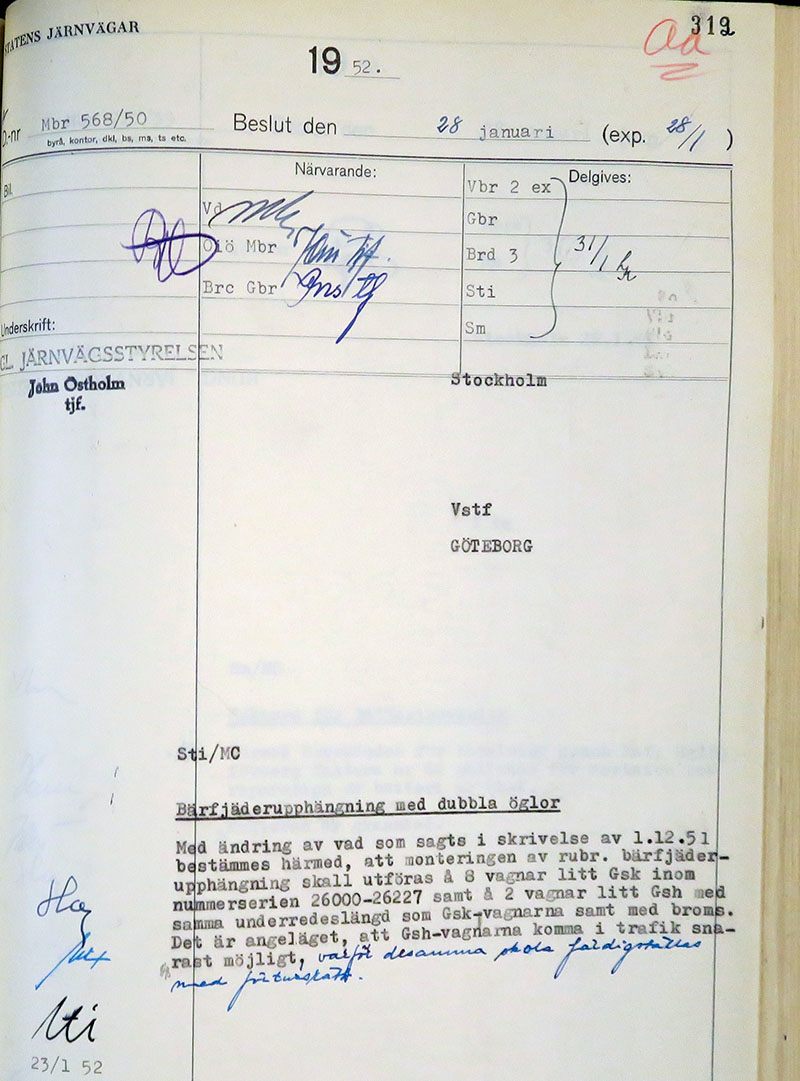 STATENS JÄRNVÄGAR
319
19 52.
D.-nr Mbr 568/50
byrå, kontor, dkl, bs, ms, ts etc.
Beslut den 28 januari (exp. 28/1 )
Bil.
Närvarande:
Delgives:
Vd
Öiö Mbr
Brc Gbr
Vbr 2 ex
Gbr
Brd 3
Sti
Sm
31/1
Underskrift:
KGL. JÄRNVÄGSSTYRELSEN
John Östholm
tjf.
Stockholm
Vstf
GÖTEBORG
Sti/MC
Bärfjäderupphängning med dubbla öglor
Med ändring av vad som sagts i skrivelse av 1.12.51
bestämmes härmed, att monteringen av rubr. bärfjäder-
upphängning skall utföras å 8 vagnar litt Gsk inom
nummerserien 26000-26227 samt å 2 vagnar litt Gsh med
samma underredeslängd som Gsk-vagnarna samt med broms.
Det är angeläget, att Gsh-vagnarna komma i trafik sna-
rast möjligt, varför desamma skola färdigställas
med förtursrätt.
23/1 52